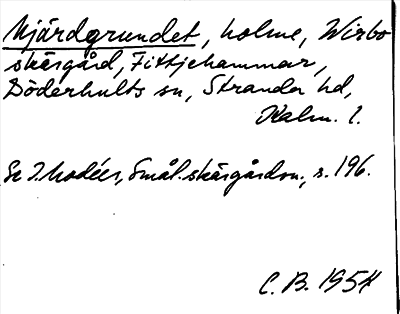 Mjärdgrundet, holme, Wirbo
skärgård, Fittjehammar,
Döderhults sn, Stranda hd,
Kalm. l.
Se J. Modéer, Smål. skärgårdsn., s. 196.
C. B. 1954